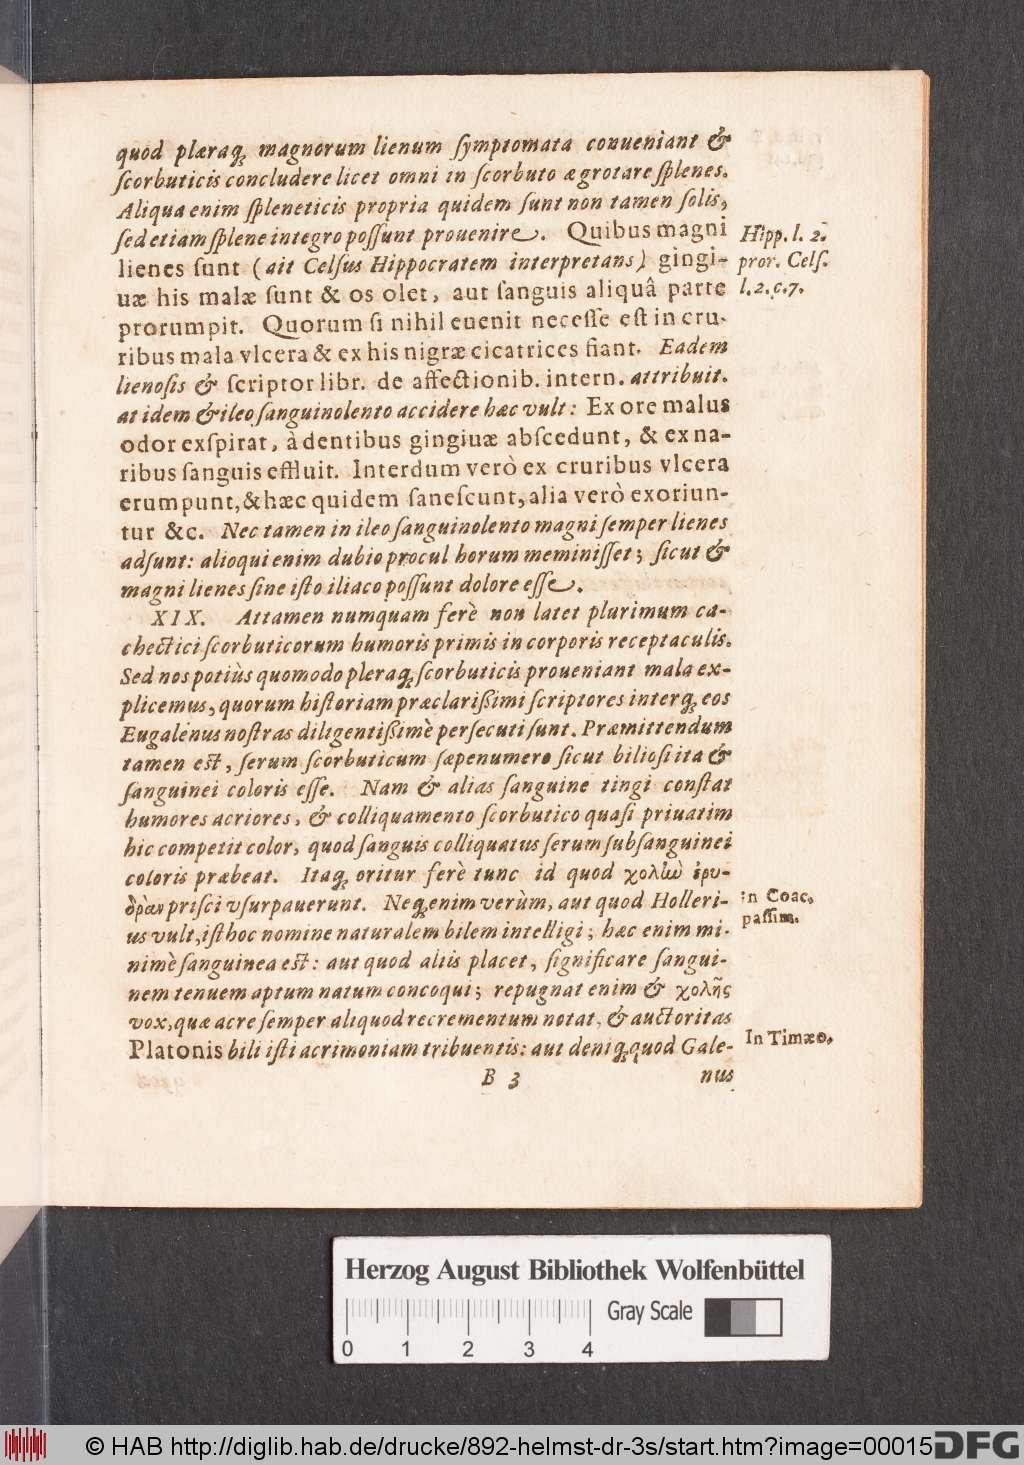 quod pleraq́ magnorum lienum ſymptomata conueniant &
ſcorbuticis concludere licet omni in ſcorbuto ægrotare ſplenes.
Aliqua enim ſpleneticis propria quidem ſunt non tamen ſolis,
ſed etiam ſplene integro poſſunt prouenire. Quibus magni
lienes ſunt (ait Celſus Hippocratem interpretans) gingi-
uæ his malæ ſunt & os olet, aut ſanguis aliquâ parte
prorumpit. Quorum ſi nihil euenit neceſſe eſt in cru-
ribus mala vlcera & ex his nigræ cicatrices fiant. Eadem
lienoſis & ſcriptor libr. de affectionib. intern. attribuit.
at idem & ileo ſanguinolento accidere hæc vult: Ex ore malus
odor exſpirat, à dentibus gingiuæ abſcedunt, & ex na-
ribus ſanguis effluit. Interdum verò ex cruribus vlcera
erumpunt, & hæc quidem ſaneſcunt, alia verò exoriun-
tur &c. Nec tamen in ileo ſanguinolento magni ſemper lienes
adſunt: alioqui enim dubio procul horum meminiſſet; ſicut &
magni lienes ſine iſto iliaco poſſunt dolore eſſe.
XIX. Attamen numquam ferè non latet plurimum ca-
chectici ſcorbuticorum humoris primis in corporis receptaculis.
Sed nos potiùs quomodo pleraq́ ſcorbuticis proueniant mala ex-
plicemus, quorum hiſtoriam præclarißimi ſcriptores interq́ eos
Eugalenus noſtras diligentißimè perſecuti ſunt. Præmittendum
tamen eſt, ſerum ſcorbuticum ſæpenumero ſicut bilioſi ita &
ſanguinei coloris eſſe. Nam & alias ſanguine tingi conſtat
humores acriores, & colliquamento ſcorbutico quaſi priuatim
hic competit color, quod ſanguis colliquatus ſerum ſubſanguinei
coloris præbeat. Itaq́ oritur ferè tunc id quod χολὴν ἐρυ-
θρὰν priſci vſurpauerunt. Neq́ enim verùm, aut quod Holleri-
us vult, iſthoc nomine naturalem bilem intelligi; hæc enim mi-
nimè ſanguinea eſt: aut quod aliis placet, ſignificare ſangui-
nem tenuem aptum natum concoqui; repugnat enim & χολῆς
vox, quæ acre ſemper aliquod recrementum notat, & auctoritas
Platonis bili iſti acrimoniam tribuentis: aut deniq́ quod Gale-
B 3 nus
Hipp. l. 2.
pror. Celſ.
l. 2. c. 7.
in Coac.
paſſim.
In Timæo.
Herzog August Bibliothek Wolfenbüttel
Gray Scale
0 1 2 3 4
© HAB http://diglib.hab.de/drucke/892-helmst-dr-3s/start.htm?image=00015
DFG